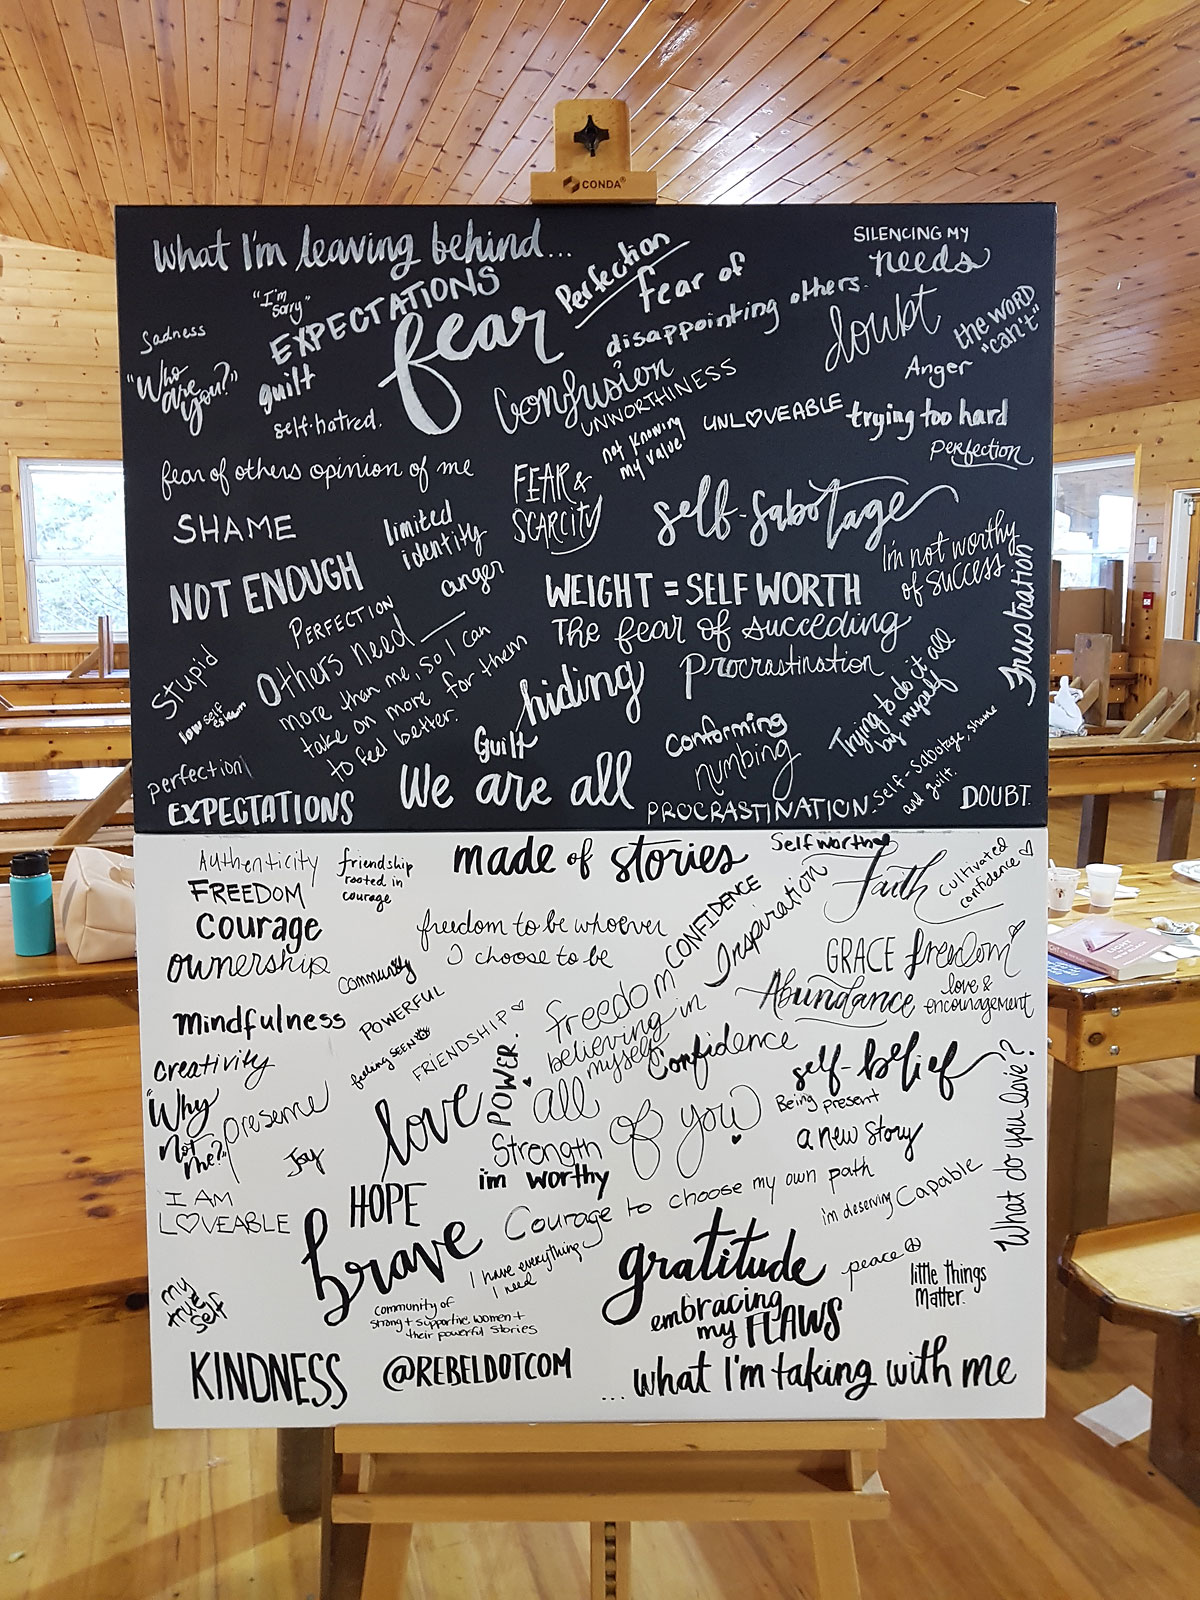 CONDA®
What I'm leaving behind...
SILENCING MY
needs
Perfection
fear of
disappointing others.
"I'm
sorry"
EXPECTATIONS
fear
doubt
the WORD
"can't"
Sadness
"Who
are
you?"
guilt
self-hatred.
Confusion
UNWORTHINESS
Anger
not knowing
my value
UNL♡VEABLE
trying too hard
perfection
fear of others opinion of me
FEAR &
SCARCITY
self-sabotage
SHAME
limited
identity
anger
I'm not worthy
of success.
frustration
NOT ENOUGH
WEIGHT = SELF WORTH
PERFECTION
The fear of succeding
Others need
more than me, so I can
take on more for them
to feel better.
Stupid
low self
esteem
hiding
procrastination
Trying to do it all
by myself
Guilt
Conforming
numbing
perfection
We are all
EXPECTATIONS
PROCRASTINATION
self-sabotage, shame
and guilt.
DOUBT.
Authenticity
friendship
rooted in
courage
made of stories
Selfworth
Faith
Cultivated
confidence ♡
FREEDOM
Courage
ownership
freedom to be whoever
I choose to be
CONFIDENCE
Inspiration
GRACE
freedom
community
Abundance
love &
encouragement
mindfulness
POWERFUL
feeling SEEN
FRIENDSHIP ♡
freedom
believing in
myself
Confidence
creativity
POWER!
self-belief
"Why
not
me?"
presence
love
all
of you
Being present
a new story
What do you love?
Joy
Strength
im worthy
I AM
L♡VEABLE
HOPE
Courage to choose my own path
i'm deserving
Capable
brave
I have everything
I need
gratitude
peace ☮
little things
Matter.
my
true
self
community of
strong + supportive women +
their powerful stories
embracing
my FLAWS
KINDNESS
@REBELDOTCOM
...what I'm taking with me